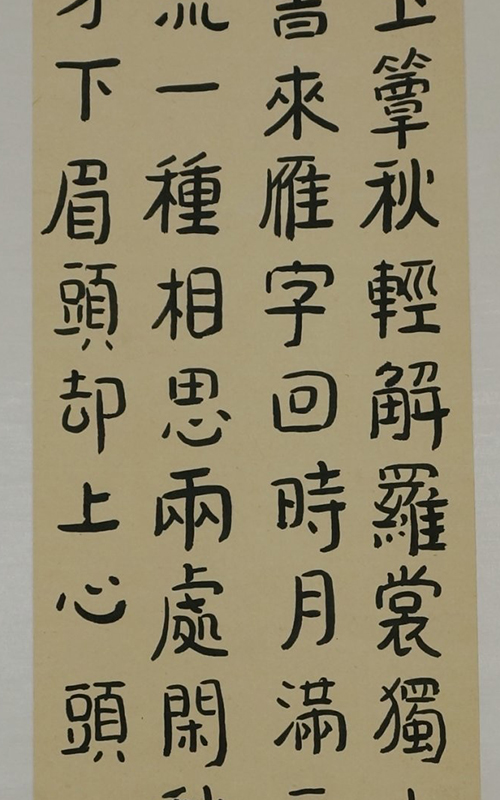 簟秋輕解羅裳獨
來雁字回時月滿
流一種相思兩處閑
才下眉頭却上心頭